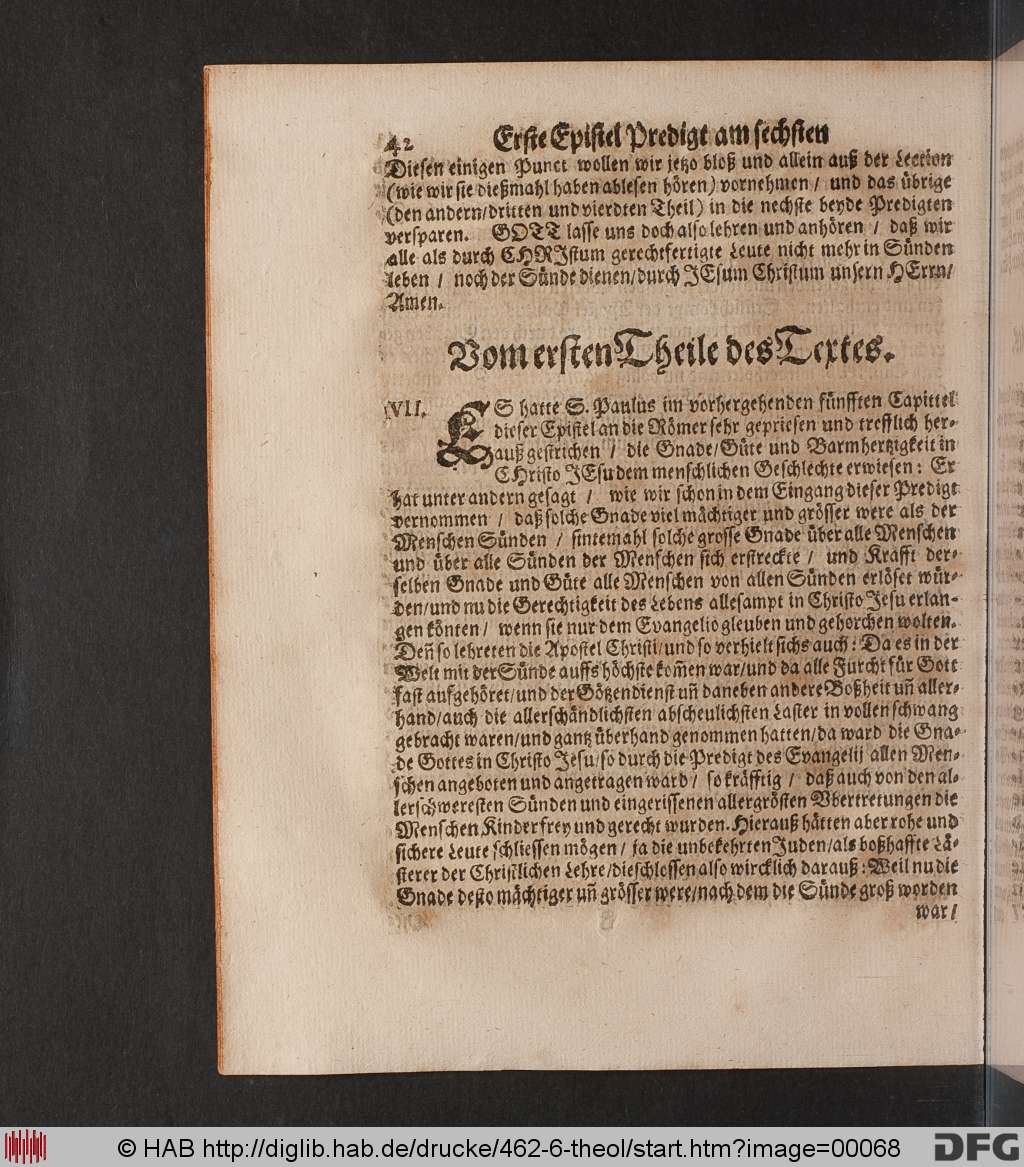 42 Erste Epistel Predigt am sechsten
Diesen einigen Punct wollen wir jetzo bloß und allein auß der Lection
(wie wir sie dießmahl haben ablesen hören) vornehmen / und das übrige
(den andern/dritten und vierdten Theil) in die nechste beyde Predigten
versparen. GOTT lasse uns doch also lehren und anhören / daß wir
alle als durch CHRIstum gerechtfertigte Leute nicht mehr in Sünden
leben / noch der Sünde dienen/durch JEsum Christum unsern HErrn/
Amen.
Vom ersten Theile des Textes.
VII. ES hatte S. Paulus im vorhergehenden fünfften Capittel
dieser Epistel an die Römer sehr gepriesen und trefflich her-
auß gestrichen / die Gnade/Güte und Barmhertzigkeit in
CHristo JEsu dem menschlichen Geschlechte erwiesen: Er
hat unter andern gesagt / wie wir schon in dem Eingang dieser Predigt
vernommen / daß solche Gnade viel mächtiger und grösser were als der
Menschen Sünden / sintemahl solche grosse Gnade über alle Menschen
und über alle Sünden der Menschen sich erstreckte / und Krafft der-
selben Gnade und Güte alle Menschen von allen Sünden erlöset wür-
den/und nu die Gerechtigkeit des Lebens allesampt in Christo Jesu erlan-
gen könten / wenn sie nur dem Evangelio gleuben und gehorchen wolten.
Deñ so lehreten die Apostel Christi/und so verhielt sichs auch: Da es in der
Welt mit der Sünde auffs höchste kom̃en war/und da alle Furcht für Gott
fast aufgehöret/und der Götzendienst uñ daneben andere Boßheit uñ aller-
hand/auch die allerschändlichsten abscheulichsten Laster in vollen schwang
gebracht waren/und gantz überhand genommen hatten/da ward die Gna-
de Gottes in Christo Jesu/so durch die Predigt des Evangelij allen Men-
schen angeboten und angetragen ward / so kräfftig / daß auch von den al-
lerschweresten Sünden und eingerissenen allergrösten Vbertretungen die
Menschen Kinder frey und gerecht wurden. Hierauß hätten aber rohe und
sichere Leute schliessen mögen / ja die unbekehrten Juden/als boßhaffte Lä-
sterer der Christlichen Lehre/die schlossen also wircklich darauß: Weil nu die
Gnade desto mächtiger uñ grösser were/nach dem die Sünde groß worden
war/
© HAB http://diglib.hab.de/drucke/462-6-theol/start.htm?image=00068
DFG